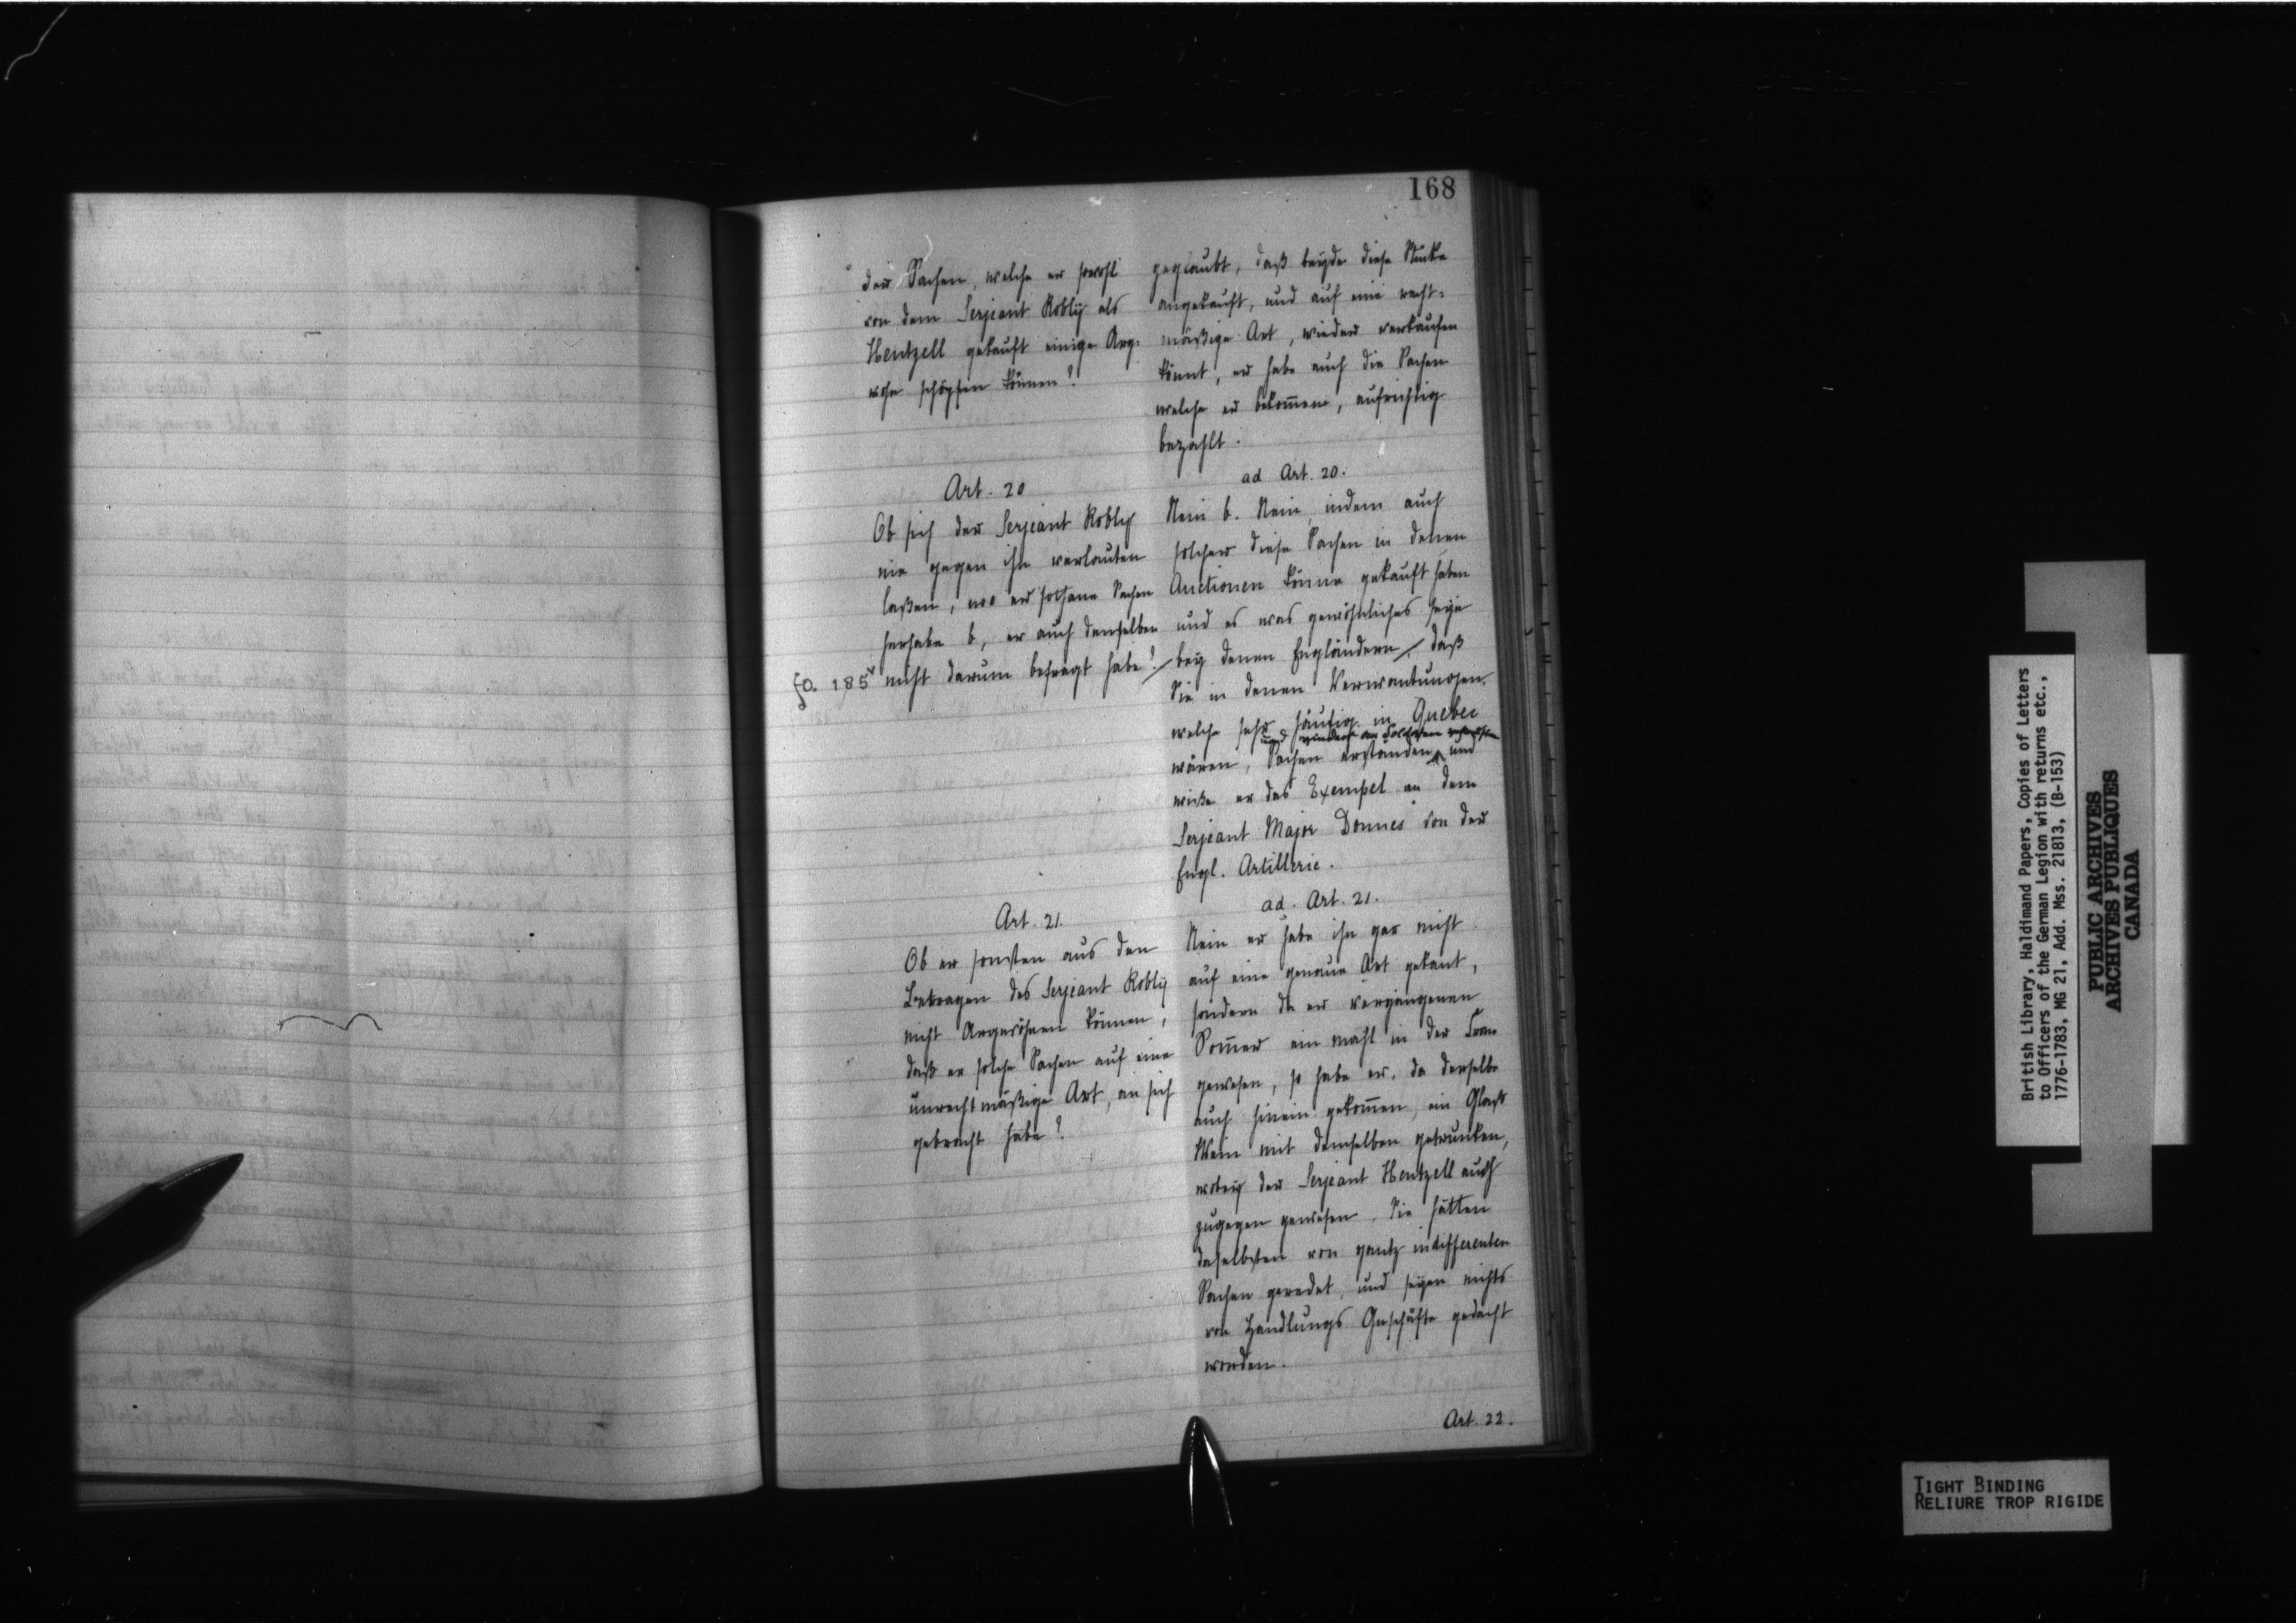 168
der Sachen, welche er sowohl
von dem Serjeant Robly als
Hentzell gekauft einige Arg-
wohn schöpfen können?
geglaubt, daß beyde diese Stücke
angekauft, und auf eine recht-
mäßige Art, wieder verkaufen
könnt, er habe auch die Sachen
welche er bekom̄en, aufrichtig
bezahlt.
Art. 20
Ob sich der Serjeant Robly
nie gegen ihn verlauten
laßen, wo er sothane Sachen
herhabe b, er auch denselben
fo. 185v nicht darum befragt habe?
ad Art. 20.
Nein b. Nein, indem auch
solcher diese Sachen in denen
Auctionen könne gekauft haben
und es was gewöhnliches seye
bey denen Engländern, daß
Sie in denen
welche sehr häufig in Quebec
und wieder an Soldaten
wären, Sachen erstanden und
wiße er das Exempel an dem
Serjeant Major Donnes von der
Engl. Artillerie.
Art. 21.
Ob er sonsten aus den
Betragen des Serjeant Robly
nicht Argwöhnen können,
daß er solche Sachen auf eine
unrechtmäßige Art, an sich
gebracht habe?
ad. Art. 21.
Nein er habe ihn gar nicht
auf eine genaue Art gekant,
sondern da er vergangenen
Som̄er ein mahl in der
gewesen, so habe er, da derselbe
auch hinein gekom̄en, ein Glaß
Wein mit demselben getrunken,
wobey der Serjeant Hentzell auch
zugegen gewesen. Sie hätten
daselbsten von gantz indifferenten
Sachen geredet, und seyen nichts
von Handlungs Geschäfte gedacht
worden.
Art. 22.
British Library, Haldimand Papers, Copies of Letters
to Officers of the German Legion with returns etc.,
1776-1783, MG 21, Add. Mss. 21813, (B-153)
PUBLIC ARCHIVES
ARCHIVES PUBLIQUES
CANADA
TIGHT BINDING
RELIURE TROP RIGIDE